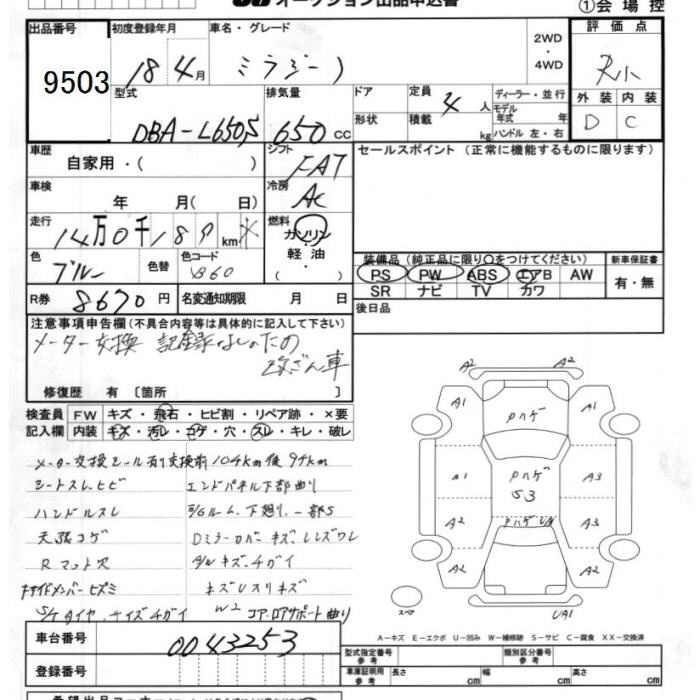 オークション出品申込書
①会場控
出品番号 初度登録年月 車名・グレード 2WD・4WD 評価点
9503 18年4月 ミラジーノ
外装 内装
D C
型式 排気量 ドア 定員 4人 ディーラー・並行
モデル年式 年
DBA-L650S 650cc 形状 積載 kg ハンドル 左・右
車歴 シフト セールスポイント (正常に機能するものに限ります)
自家用・( ) FAT
車検 冷房
年 月( 日) AC
走行 燃料
14万0千189km ガソリン・軽油・
色 色替 色コード 装備品(純正品に限り○をつけてください) 新車保証書
ブルー B60 PS PW ABS エアB AW 有・無
SR ナビ TV カワ
R券 8670円 名変通知期限 月 日 後日品
注意事項申告欄(不具合内容等は具体的に記入して下さい)
メーター交換 記録簿なしのため
改ざん車
修復歴 有〔箇所 〕
検査員 FW キズ・飛石・ヒビ割・リペア跡・×要
記入欄 内装 キズ・汚レ・コゲ・穴・スレ・キレ・破レ
メーター交換シール有り交換前104km後97km
シートスレ、ヒビ エンドパネル下部曲り
ハンドルスレ E/Gルーム、下廻り、一部S
天張コゲ Dミラーカバーキズ、レンズワレ
Rマット穴 A/Wキズ、チガイ
サイドメンバーヒズミ キズUスリキズ
S/Tタイヤ、サイズチガイ W2 コア、ロアサポート曲り
A2 A2
A1 A1
Pハゲ
A1 Pハゲ A3
S3
A2 PハゲUW A3
A2 A2
スペア UA1
A-キズ E-エクボ U-凹み W-補修跡 S-サビ C-腐食 XX-交換済
車台番号 0043253
型式指定番号 参考 類別区分番号 参考
登録番号 車庫証明用 参考 長さ 幅 高さ cm
希望出品コーナー